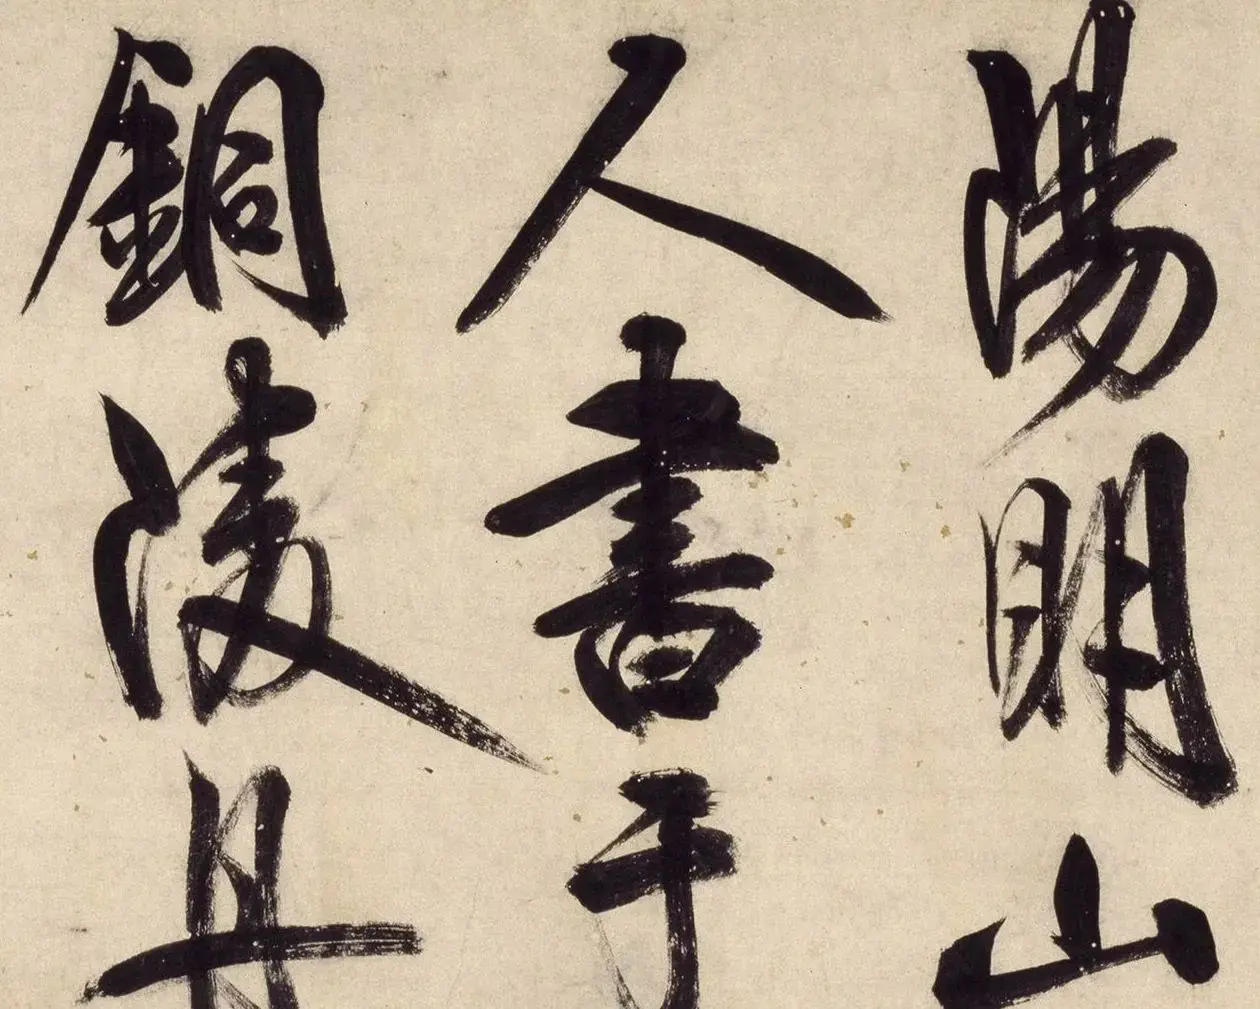 陽明山
人書于
銅陵舟